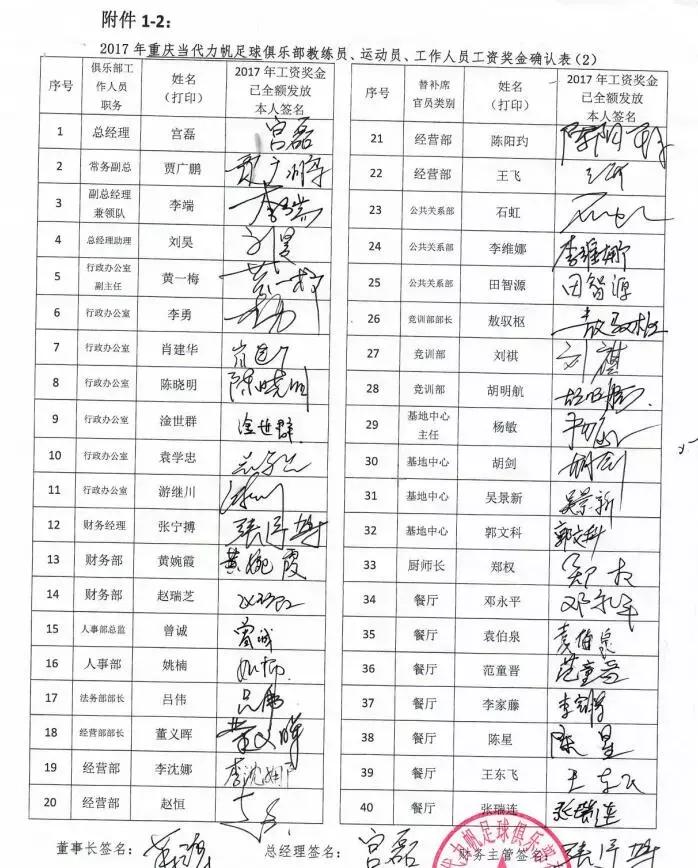 附件 1-2：
2017 年重庆当代力帆足球俱乐部教练员、运动员、工作人员工资奖金确认表（2）
序号 俱乐部工作人员职务 姓名（打印） 2017 年工资奖金已全额发放本人签名
1 总经理 宫磊 宫磊
2 常务副总 贾广鹏
3 副总经理兼领队 李端
4 总经理助理 刘昊 刘昊
5 行政办公室副主任 黄一梅 黄一梅
6 行政办公室 李勇
7 行政办公室 肖建华
8 行政办公室 陈晓明 陈晓明
9 行政办公室 淦世群 淦世群
10 行政办公室 袁学忠
11 行政办公室 游继川
12 财务经理 张宁搏
13 财务部 黄婉霞 黄婉霞
14 财务部 赵瑞芝
15 人事部总监 曾诚 曾诚
16 人事部 姚楠
17 法务部部长 吕伟 吕伟
18 经营部部长 董义晖 董义晖
19 经营部 李沈娜 李沈娜
20 经营部 赵恒
序号 替补席官员类别 姓名（打印） 2017 年工资奖金已全额发放本人签名
21 经营部 陈阳玓
22 经营部 王飞
23 公共关系部 石虹
24 公共关系部 李维娜 李维娜
25 公共关系部 田智源 田智源
26 竞训部部长 敖驭枢
27 竞训部 刘祺 刘祺
28 竞训部 胡明航
29 基地中心主任 杨敏
30 基地中心 胡剑 胡剑
31 基地中心 吴景新 吴景新
32 基地中心 郭文科 郭文科
33 厨师长 郑权 郑权
34 餐厅 邓永平 邓永平
35 餐厅 袁伯泉 袁伯泉
36 餐厅 范童晋 范童晋
37 餐厅 李家藤
38 餐厅 陈星 陈星
39 餐厅 王东飞 王东飞
40 餐厅 张瑞连 张瑞连
董事长签名： 总经理签名： 宫磊 财务主管签名
代力帆足球俱乐